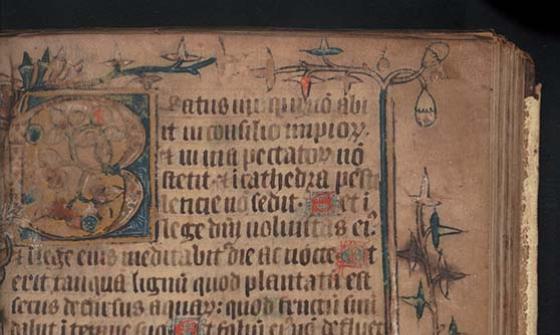 Beatus uir qui nō abi
it in consilio impioꝝ.
et in uia peccatoꝝ nō
stetit ⁊ ī cathedra pesti
lencie nō sedit. Set ī
lege dn̄i uoluntas eiꝰ
⁊ ī lege eius meditabit᷑ die ac nocte Et
erit tanquā lignū quod plantatū est
secus decursus aquaꝝ: quod fructū suū
dabit ī tempe suo Et foliū eiꝰ nō defluet